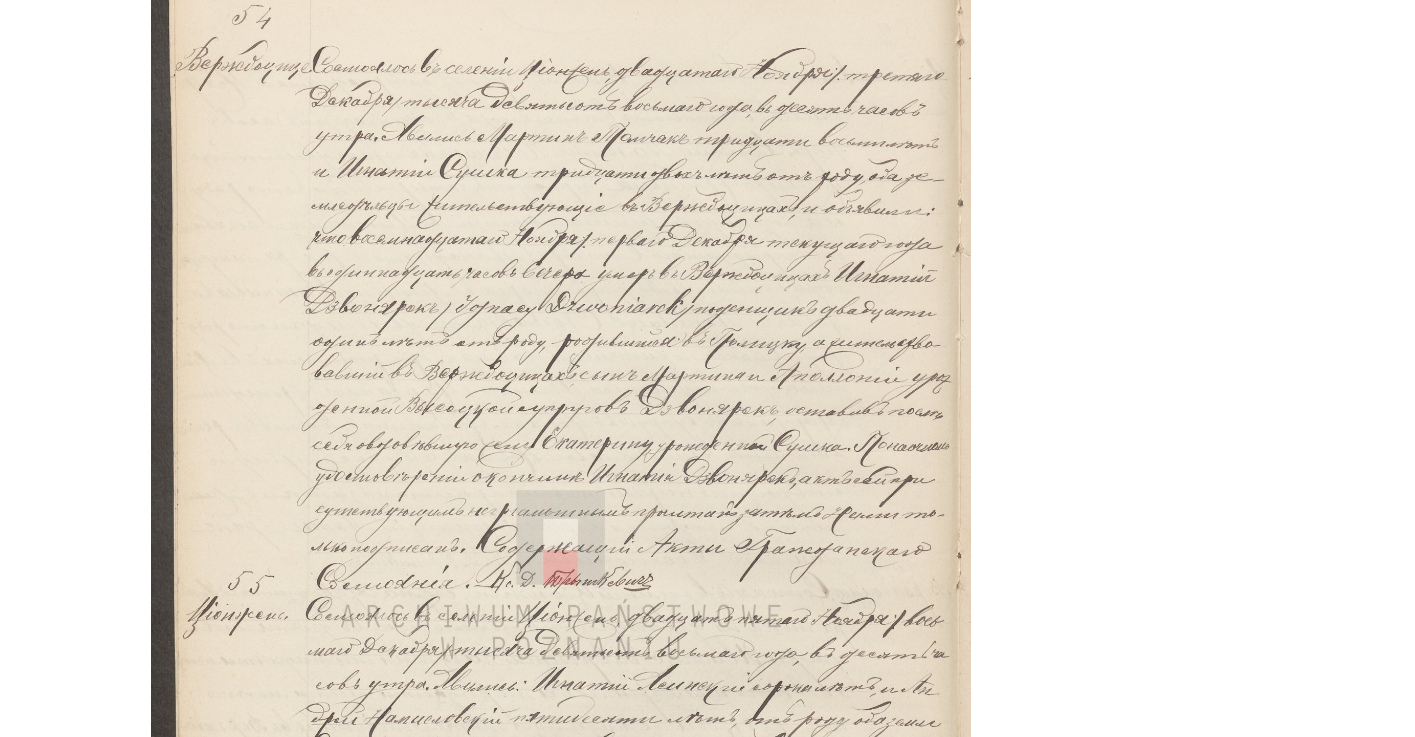 54
Вержбоцице Состоялось въ селеніи Ціонжень, двадцатаго Ноября /: третяго
Декабря/ тысяча девятьсотъ восьмаго года, въ десять часовъ
утра. Явились Мартинъ Молчакъ тридцати восьми лѣтъ
и Игнатій Сушка тридцати двохъ лѣтъ отъ роду оба зе-
мледѣльцы жительствующіе въ Вержбоцицахъ, и объявили:
что восемнадцатаго Ноября /: перваго Декабря текущаго года
въ одиннадцать часовъ вечера умеръ въ Вержбоцицахъ Игнатій
Дзвонярекъ / Ignacy Dzwoniarek/ поденщикъ двадцати
одинъ лѣтъ отъ роду, родившійся въ а жительство-
вавшій въ Вержбоцицахъ сынъ Мартина и Аполлоніи уро
жденной Высоцкой супруговъ Дзвонярекъ, оставивъ послѣ
себя овдовѣвшую жену Екатерину урожденная Сушка. По настоящемъ
удостовѣреніи о кончинѣ Игнатія Дзвонярекъ, актъ сей при
сутствующимъ неграмотнымъ прочитанъ затѣмъ Нами то-
лько подписанъ. Содержащій Акты Гражданскаго
Состоянія. Кс. Д.
55
Ціонжень. Состоялось въ селеніи Ціонжень двадцать пятаго Ноября /: вось
маго Декабря/ тысяча девятьсотъ восьмаго года, въ десять ча
совъ утра. Явились: Игнатій Ясинскій сорока лѣтъ, и Ан
дрей Намысловскій пятидесяти лѣтъ, отъ роду оба земле
ARCHIWUM PAŃSTWOWE
W POZNANIU